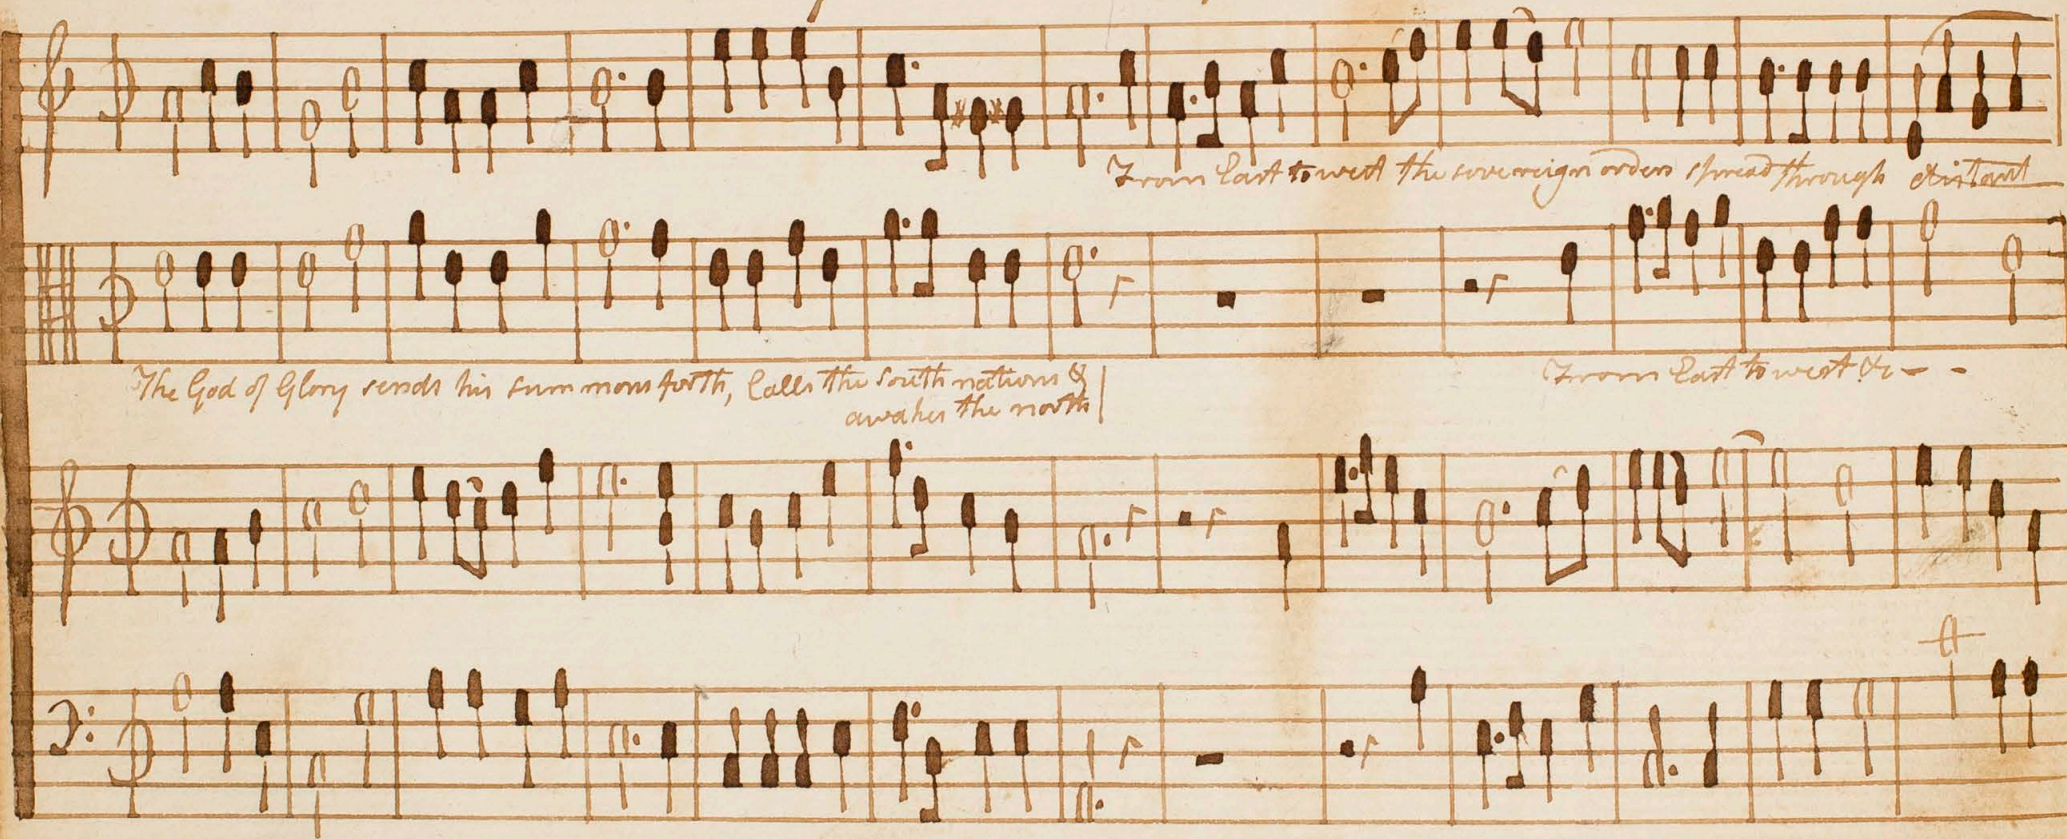 From East to west the sovereign orders spread through distant
The God of Glory sends his summons forth, Calls the South nations &
awakes the north
From East to west &c - -